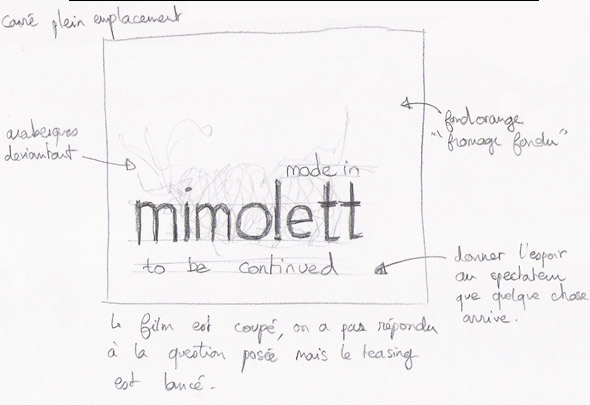 Carré plein emplacement
arabesques
deviantart
fond orange
"fromage fondu"
made in
mimolett
to be continued
donner l'espoir
au spectateur
que quelque chose
arrive.
le film est coupé, on a pas répondu
à la question posée mais le teasing
est lancé.